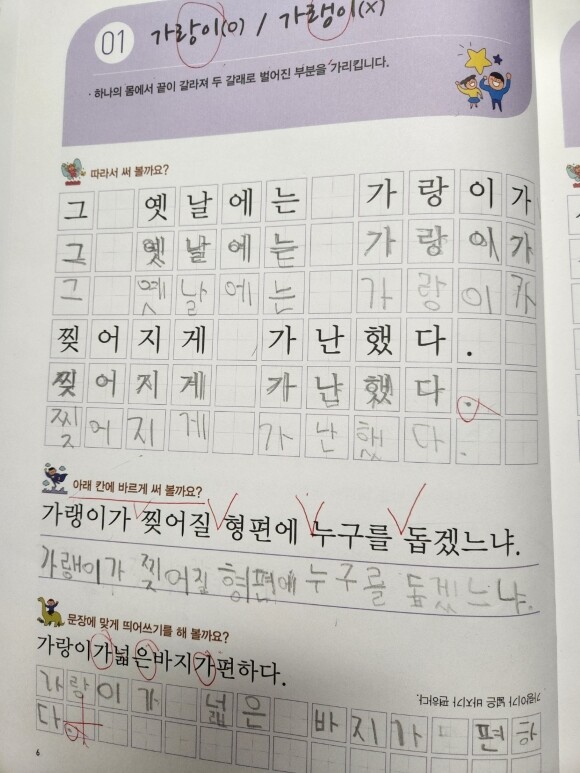 01 가랑이(O) / 가랭이(X)
· 하나의 몸에서 끝이 갈라져 두 갈래로 벌어진 부분을 가리킵니다.
따라서 써 볼까요?
그 옛날에는 가랑이가
그 옛날에는 가랑이가
그 옛날에는 가랑이가
찢어지게 가난했다.
찢어지게 가난했다.
찢어지게 가난했다.
아래 칸에 바르게 써 볼까요?
가랭이가 찢어질 형편에 누구를 돕겠느냐.
가랭이가 찢어질 형편에 누구를 돕겠느냐.
문장에 맞게 띄어쓰기를 해 볼까요?
가랑이가넓은바지가편하다.
가랑이가 넓은 바지가 편하다.
가랑이가 넓은 바지가 편하
다.
6